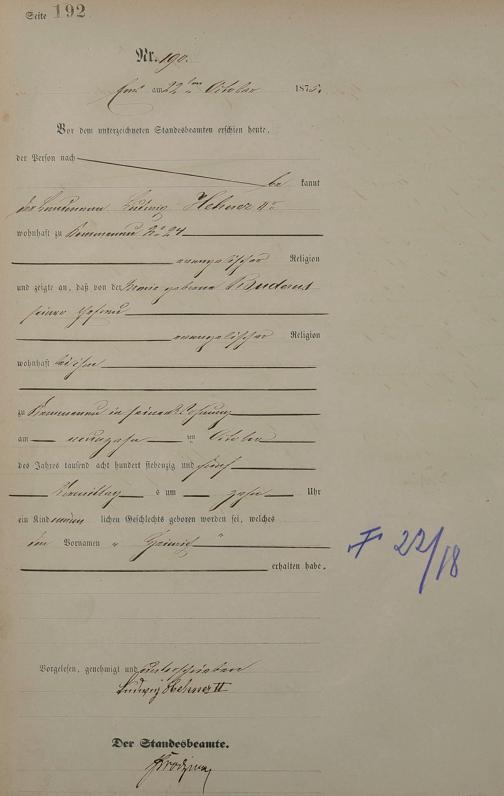 Seite 192
Nr. 190.
Ems am 22ten October 1875.
Vor dem unterzeichneten Standesbeamten erschien heute,
der Person nach
be kannt
der Landmann Ludwig Hehner IIr
wohnhaft zu Kemmenau No 24
evangelischer Religion
und zeigte an, daß von der Marie geborene Buderus
seiner Ehefrau
evangelischer Religion
wohnhaft bei ihm
zu Kemmenau in seiner Wohnung
am neunzehn ten October
des Jahres tausend acht hundert siebenzig und fünf
Vormittag s um zehn Uhr
ein Kind männ lichen Geschlechts geboren worden sei, welches
den Vornamen „ Heinrich "
erhalten habe.
22/18
Vorgelesen, genehmigt und unterschrieben
Ludwig Hehner II
Der Standesbeamte.